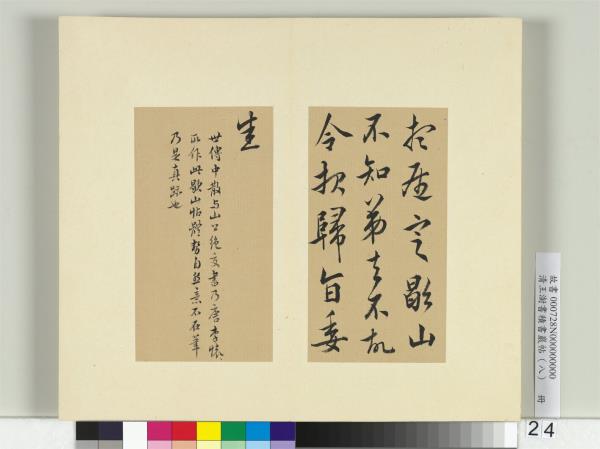 廷定歇山
不知弟去不故
令报歸旨委
世傳中散与山公絶交書乃唐李懷
所作此歇山帖體勢自然意不在筆
乃是真跡也
故書 000728N000000000
清王澍書積書巖帖(八) 冊
24